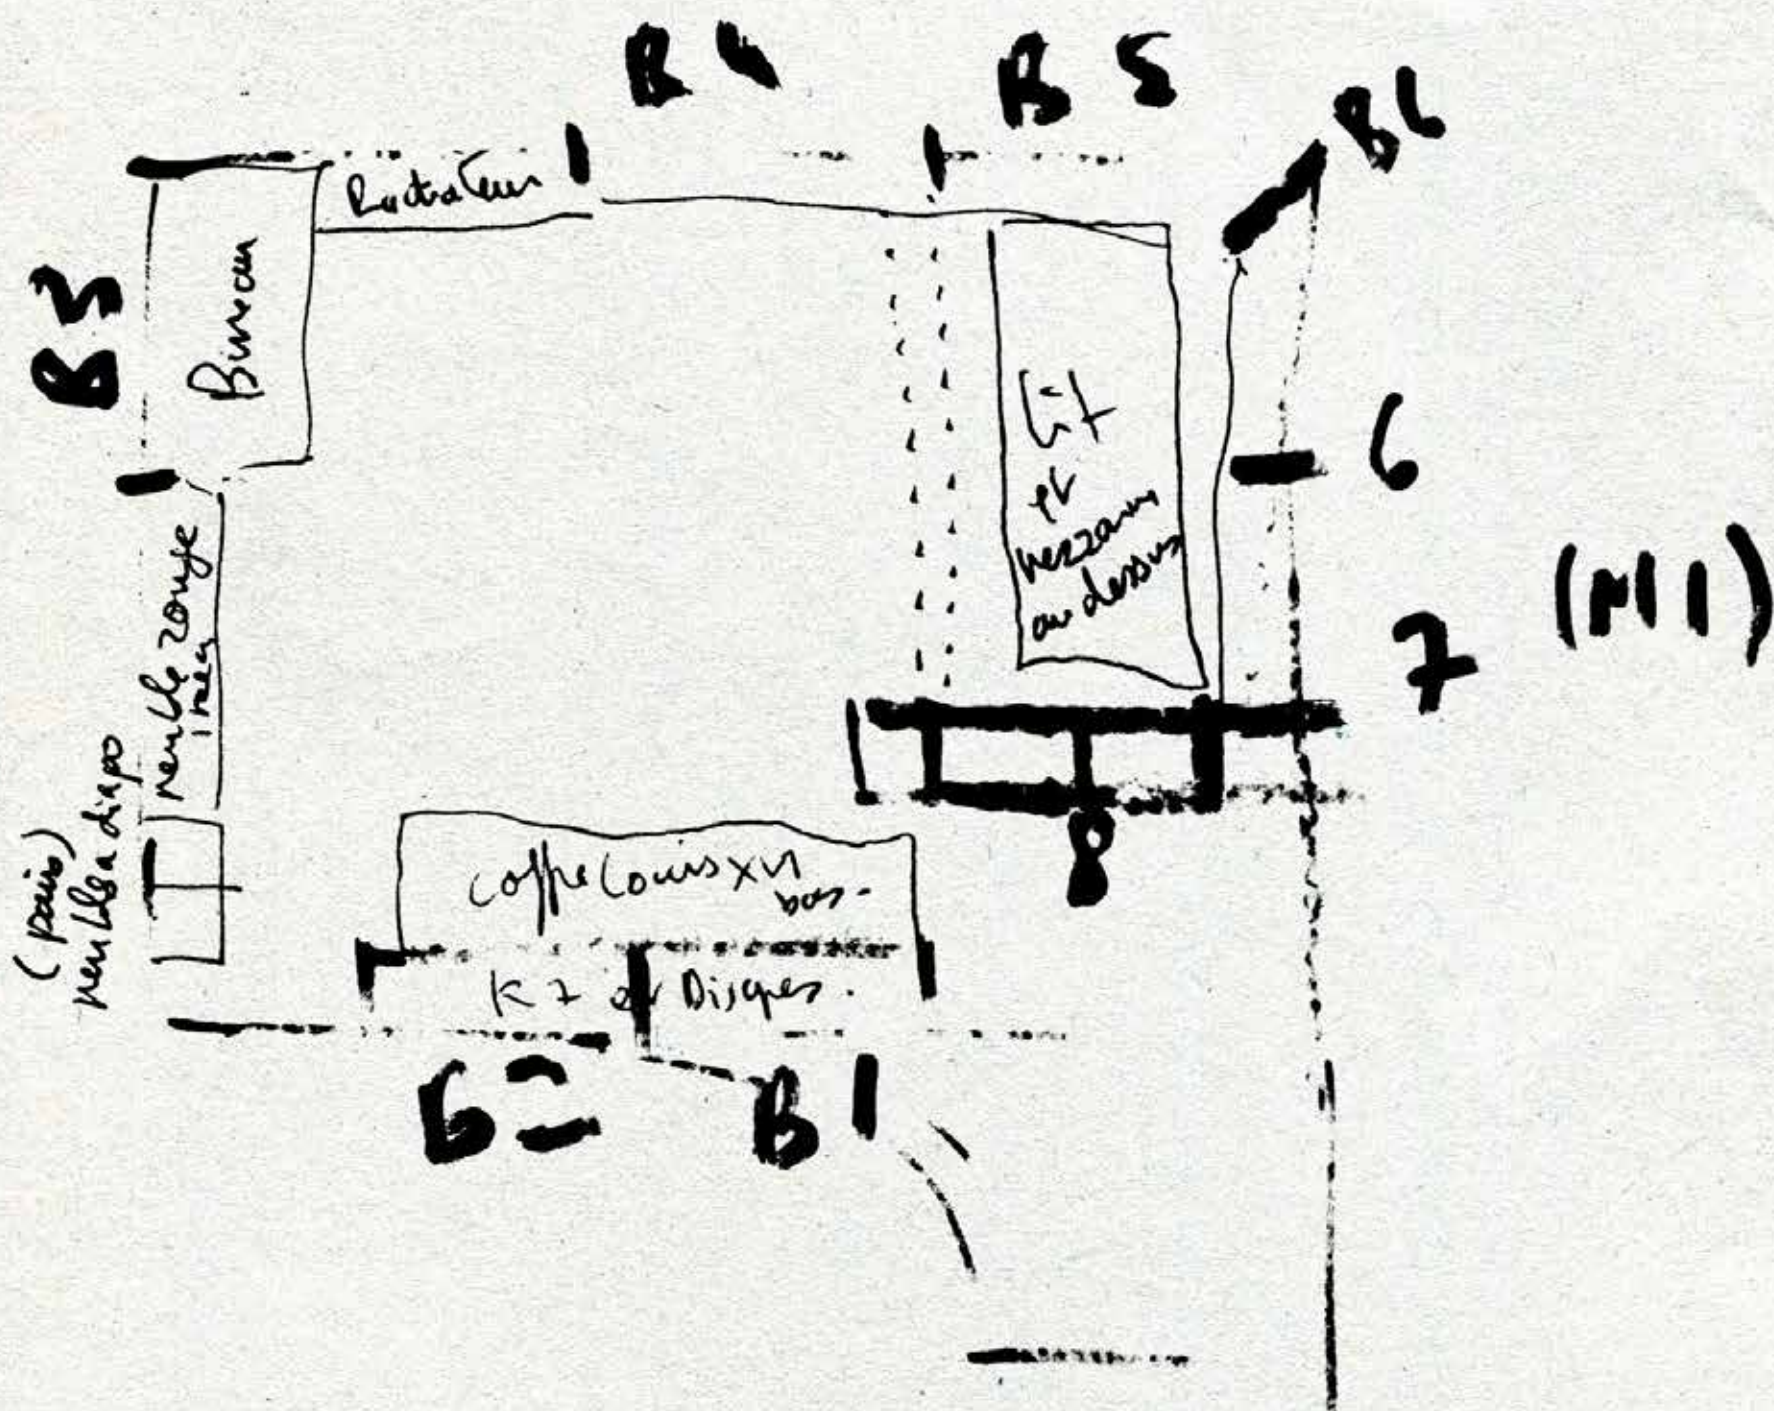 B 4
B 5
B6
Radiateur
B3
Bureau
Lit
et
mezzanine
au dessus
6
(M1)
7
meuble rouge
8
meubles a diapo
coffre Louis XVI
bas.
K7 et Disques.
B2
B1